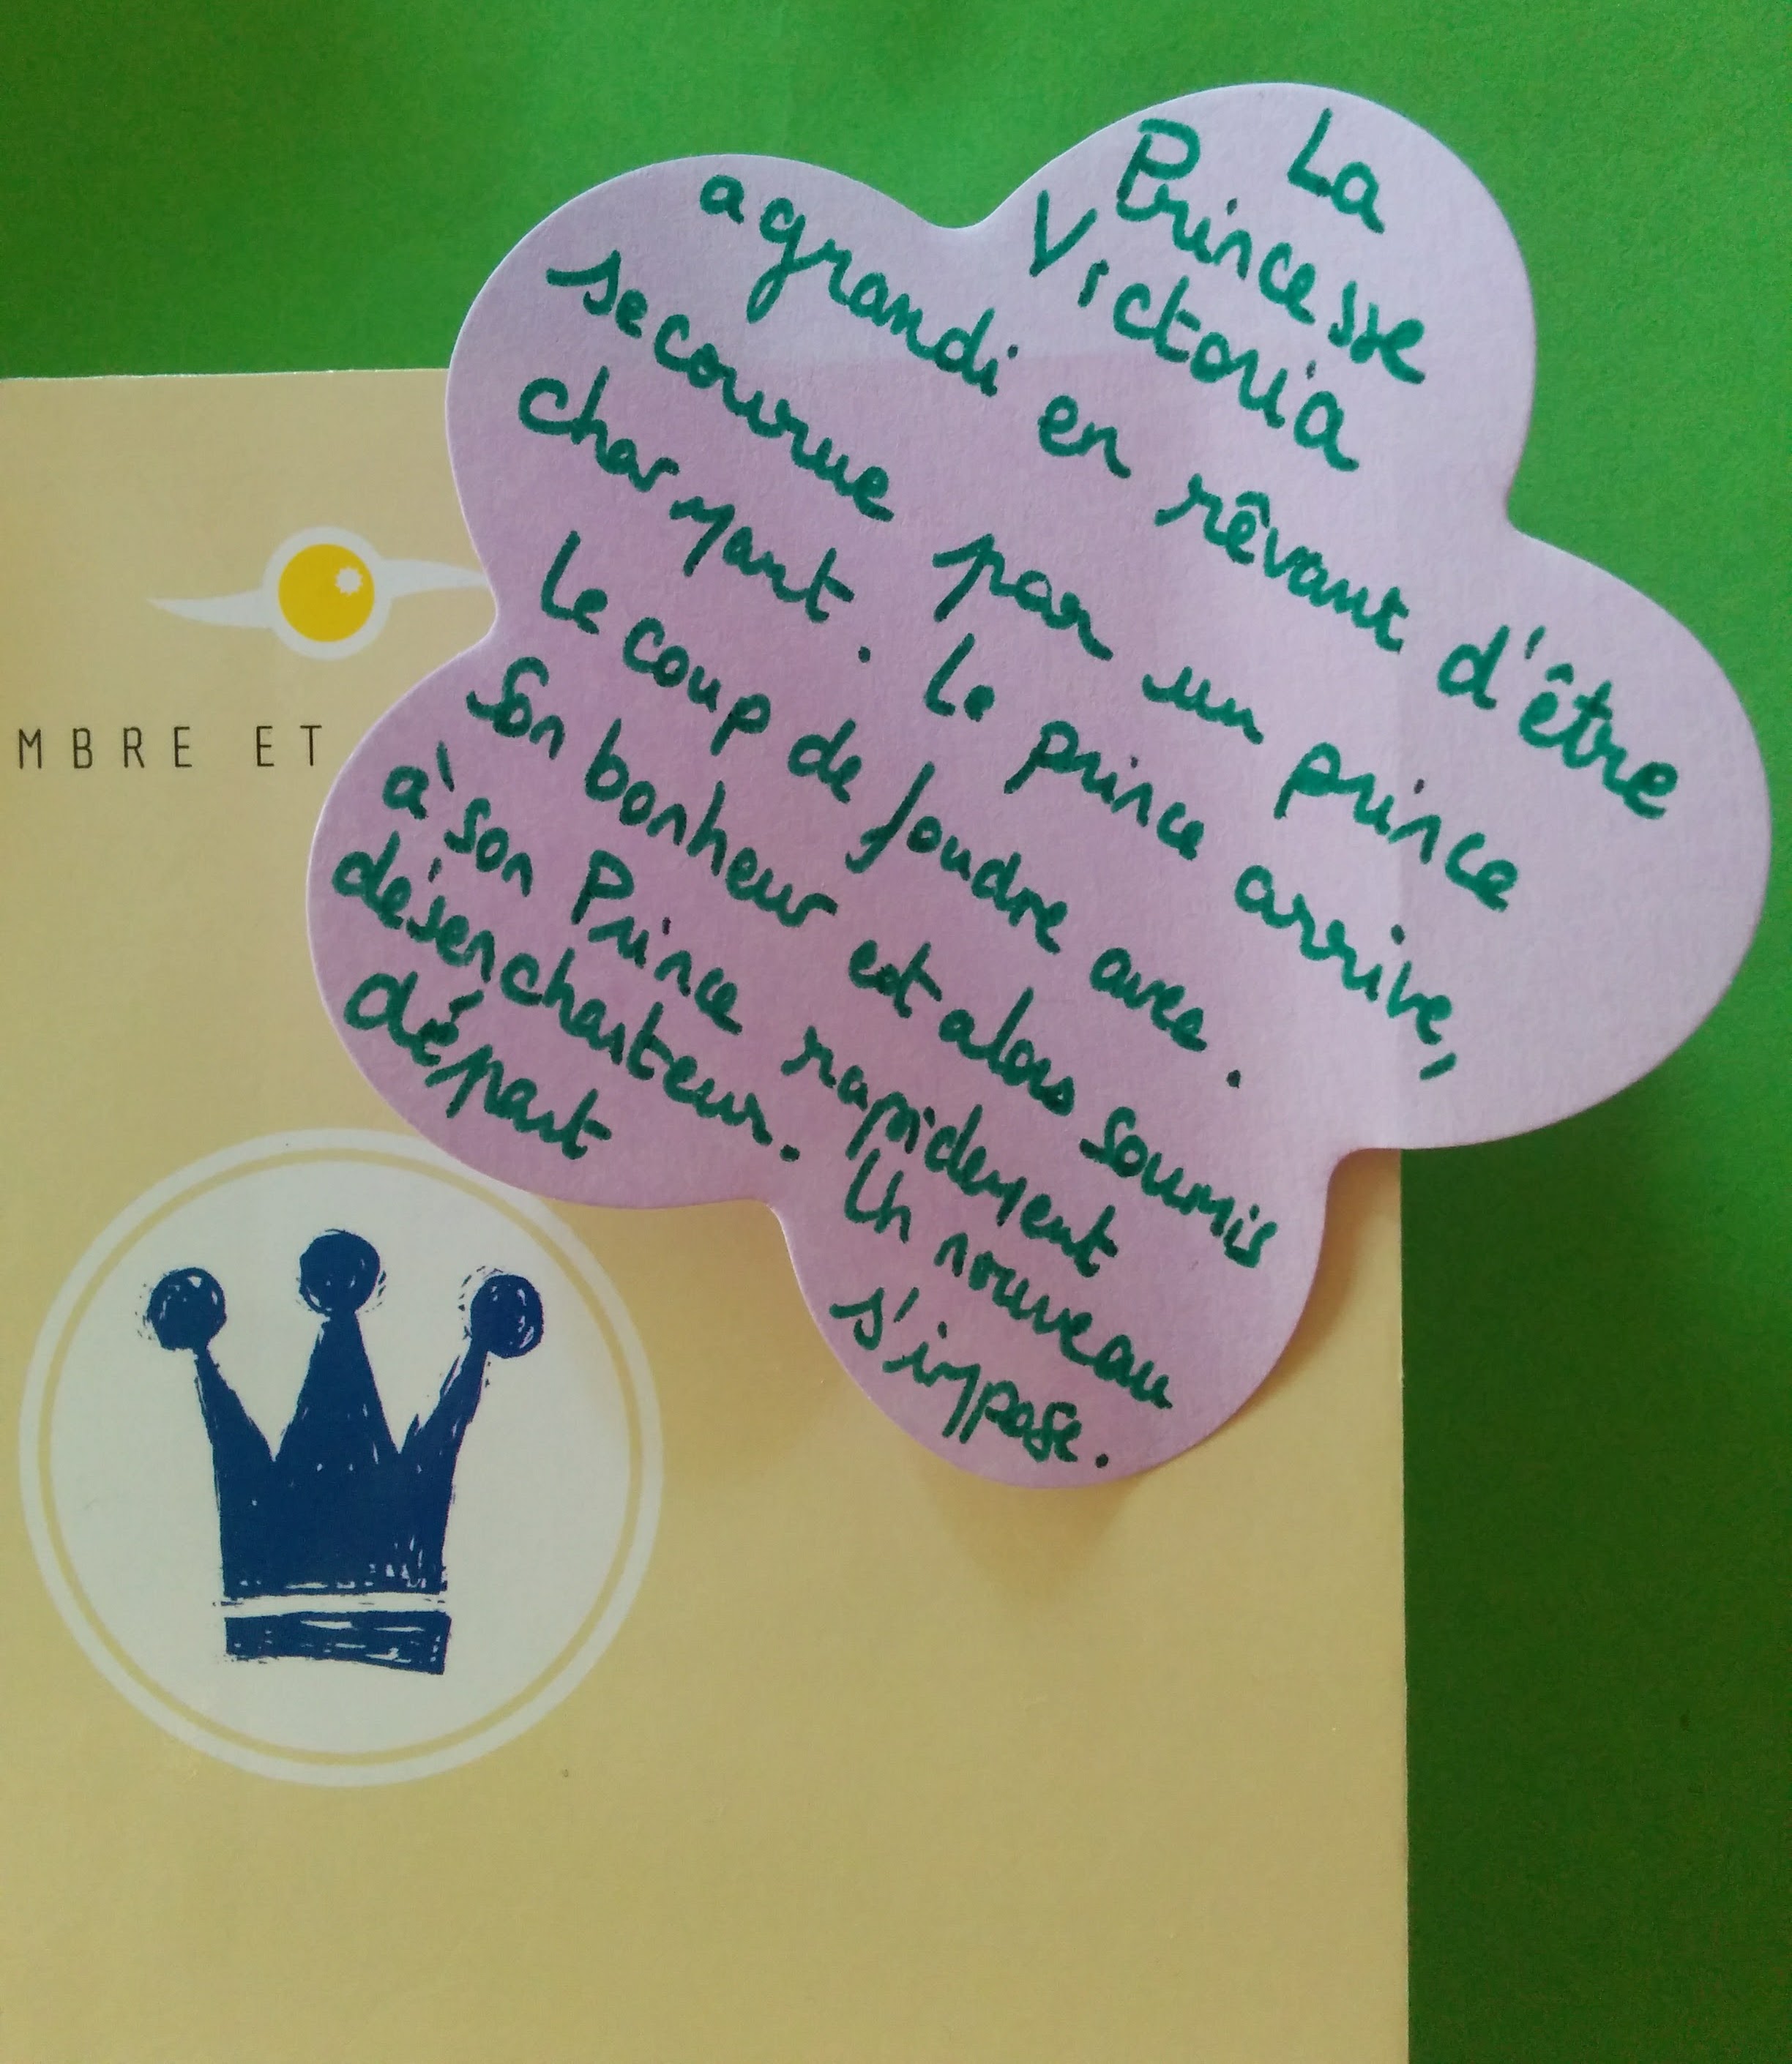 La
Princesse
Victoria
a grandi en rêvant d'être
secourue par un prince
charmant. Le prince arrive,
le coup de foudre avec.
Son bonheur est alors soumis
à son Prince rapidement
désenchanteur. Un nouveau
départ s'impose.
MBRE ET